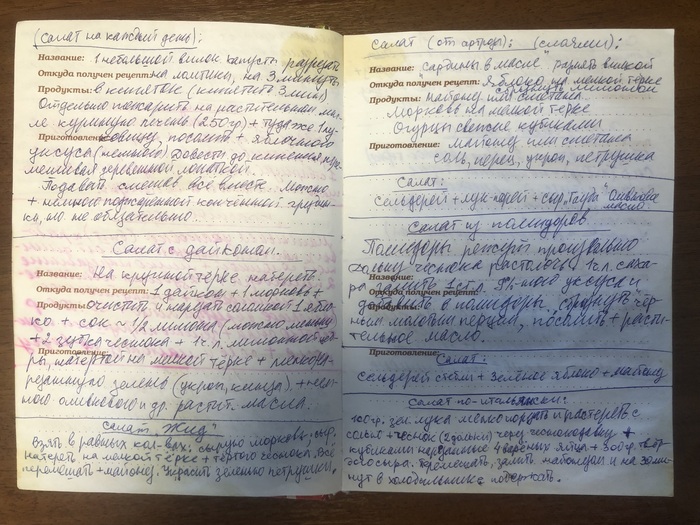 (Салат на каждый день);
Название: 1 небольшой вилок капусты разрезать
Откуда получен рецепт: на ломтики, на 3 минуты
Продукты: в кипяток (кипятить 3 мин)
Отдельно пожарить на растительном мас-
ле куриную печень (250гр) + туда же 1 лу-
Приготовление: ковицу, посолить + яблочного
уксуса (немного) Довести до кипения пере-
мешивая деревянной лопаткой.
Подавать смешав всё вместе. Можно
+ немного поджаренной копчённой грудин-
ки, но не обязательно.
Салат с дайконом.
Название: На крупной тёрке натереть
Откуда получен рецепт: 1 дайкон + 1 морковь +
Продукты: очистить и нарезать соломкой 1 ябло-
ко + сок 1/2 лимона (можно меньше)
+ 2 зубка чеснока + 1 ч.л. лимонной цед-
Приготовление:
ры, натертой на мелкой тёрке + мелкопо-
резанную зелень (укроп, кинза), + нем-
ного оливкового и др. растит. масла.
Салат "Жид"
Взять в равных кол-вах: сырую морковь, сыр,
натереть на мелкой тёрке + тёртого чеснока. Всё
перемешать + майонез. Украсить зеленью петрушки.
Салат (от артрозы); (слоями);
Название: Сардины в масле размять вилкой
Откуда получен рецепт: Яблоко на мелкой тёрке
сбрызнуть лимоном
Продукты: майонез или сметана
Морковь на мелкой тёрке
Огурцы свежие кубиками
Приготовление: майонез или сметана
соль, перец, укроп, петрушка
Салат:
Сельдерей + лук-порей + сыр "Гауда" Оливковое
масло.
Салат из помидоров
Помидоры режем произвольно
Название:
дольку чеснока растолочь 1 ч.л. саха-
Откуда получен рецепт:
ра 9%-ного уксуса и
Продукты:
добавить в помидоры, сбрызнуть чёр-
ным молотым перцем, посолить + расти-
тельное масло.
Приготовление:
Салат:
Сельдерей стебли + зелёное яблоко + майонез
Салат по-итальянски:
100гр. зел. лука мелко порезать и растереть с
солью + чеснок (2 дольки) через чеснокодавку +
кубиками нарезанные 4 варёных яйца + 300 гр. твёр-
дого сыра. Перемешать, залить майонезом и на 30 ми-
нут в холодильнике подержать.